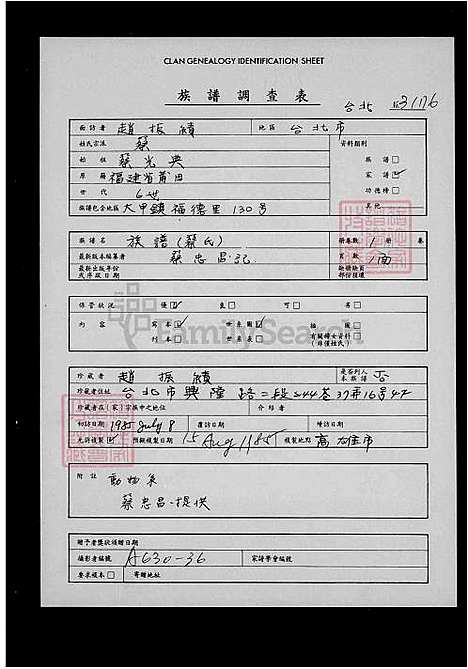 CLAN GENEALOGY IDENTIFICATION SHEET
族譜調查表
台北 3176
面訪者 趙振績 地區 台北市
姓氏宗派 蔡 資料類別
始祖 蔡光與 族譜□
原籍 福建省莆田 家譜☑
世代 6世 功德榜□
族譜包含地區 大甲鎮福德里130号 其他
族譜名 族譜(蔡氏) 冊卷數 1 冊 卷
最新版本編纂者 蔡忠昌記 頁數 1面
最新出版年份 缺損缺頁
或序跋日期 部份後還
保管狀況 優☑ 良□ 可□ 劣□
內容 寫本☑ 世系圖☑ 插圖□
刊本□ 世系表□ 有關婦女資料□
(非僅姓氏)
FamilySearch
珍藏者 趙振績 是否列入本族譜 否
珍藏者住址 台北市興隆路二段244巷37弄16号4F
珍藏者在(家)宗族中之地位 介紹者
初訪日期 1985 July 8 覆訪日期 續訪日期
允許複製☑ 預擬複製日期 15 Aug 1985 複製地點 高雄市
附註
蔡忠昌提供
贈予者獎狀頒贈日期
攝影者編號 A630-36 家譜學會編號
要求複本□ 寄贈地址